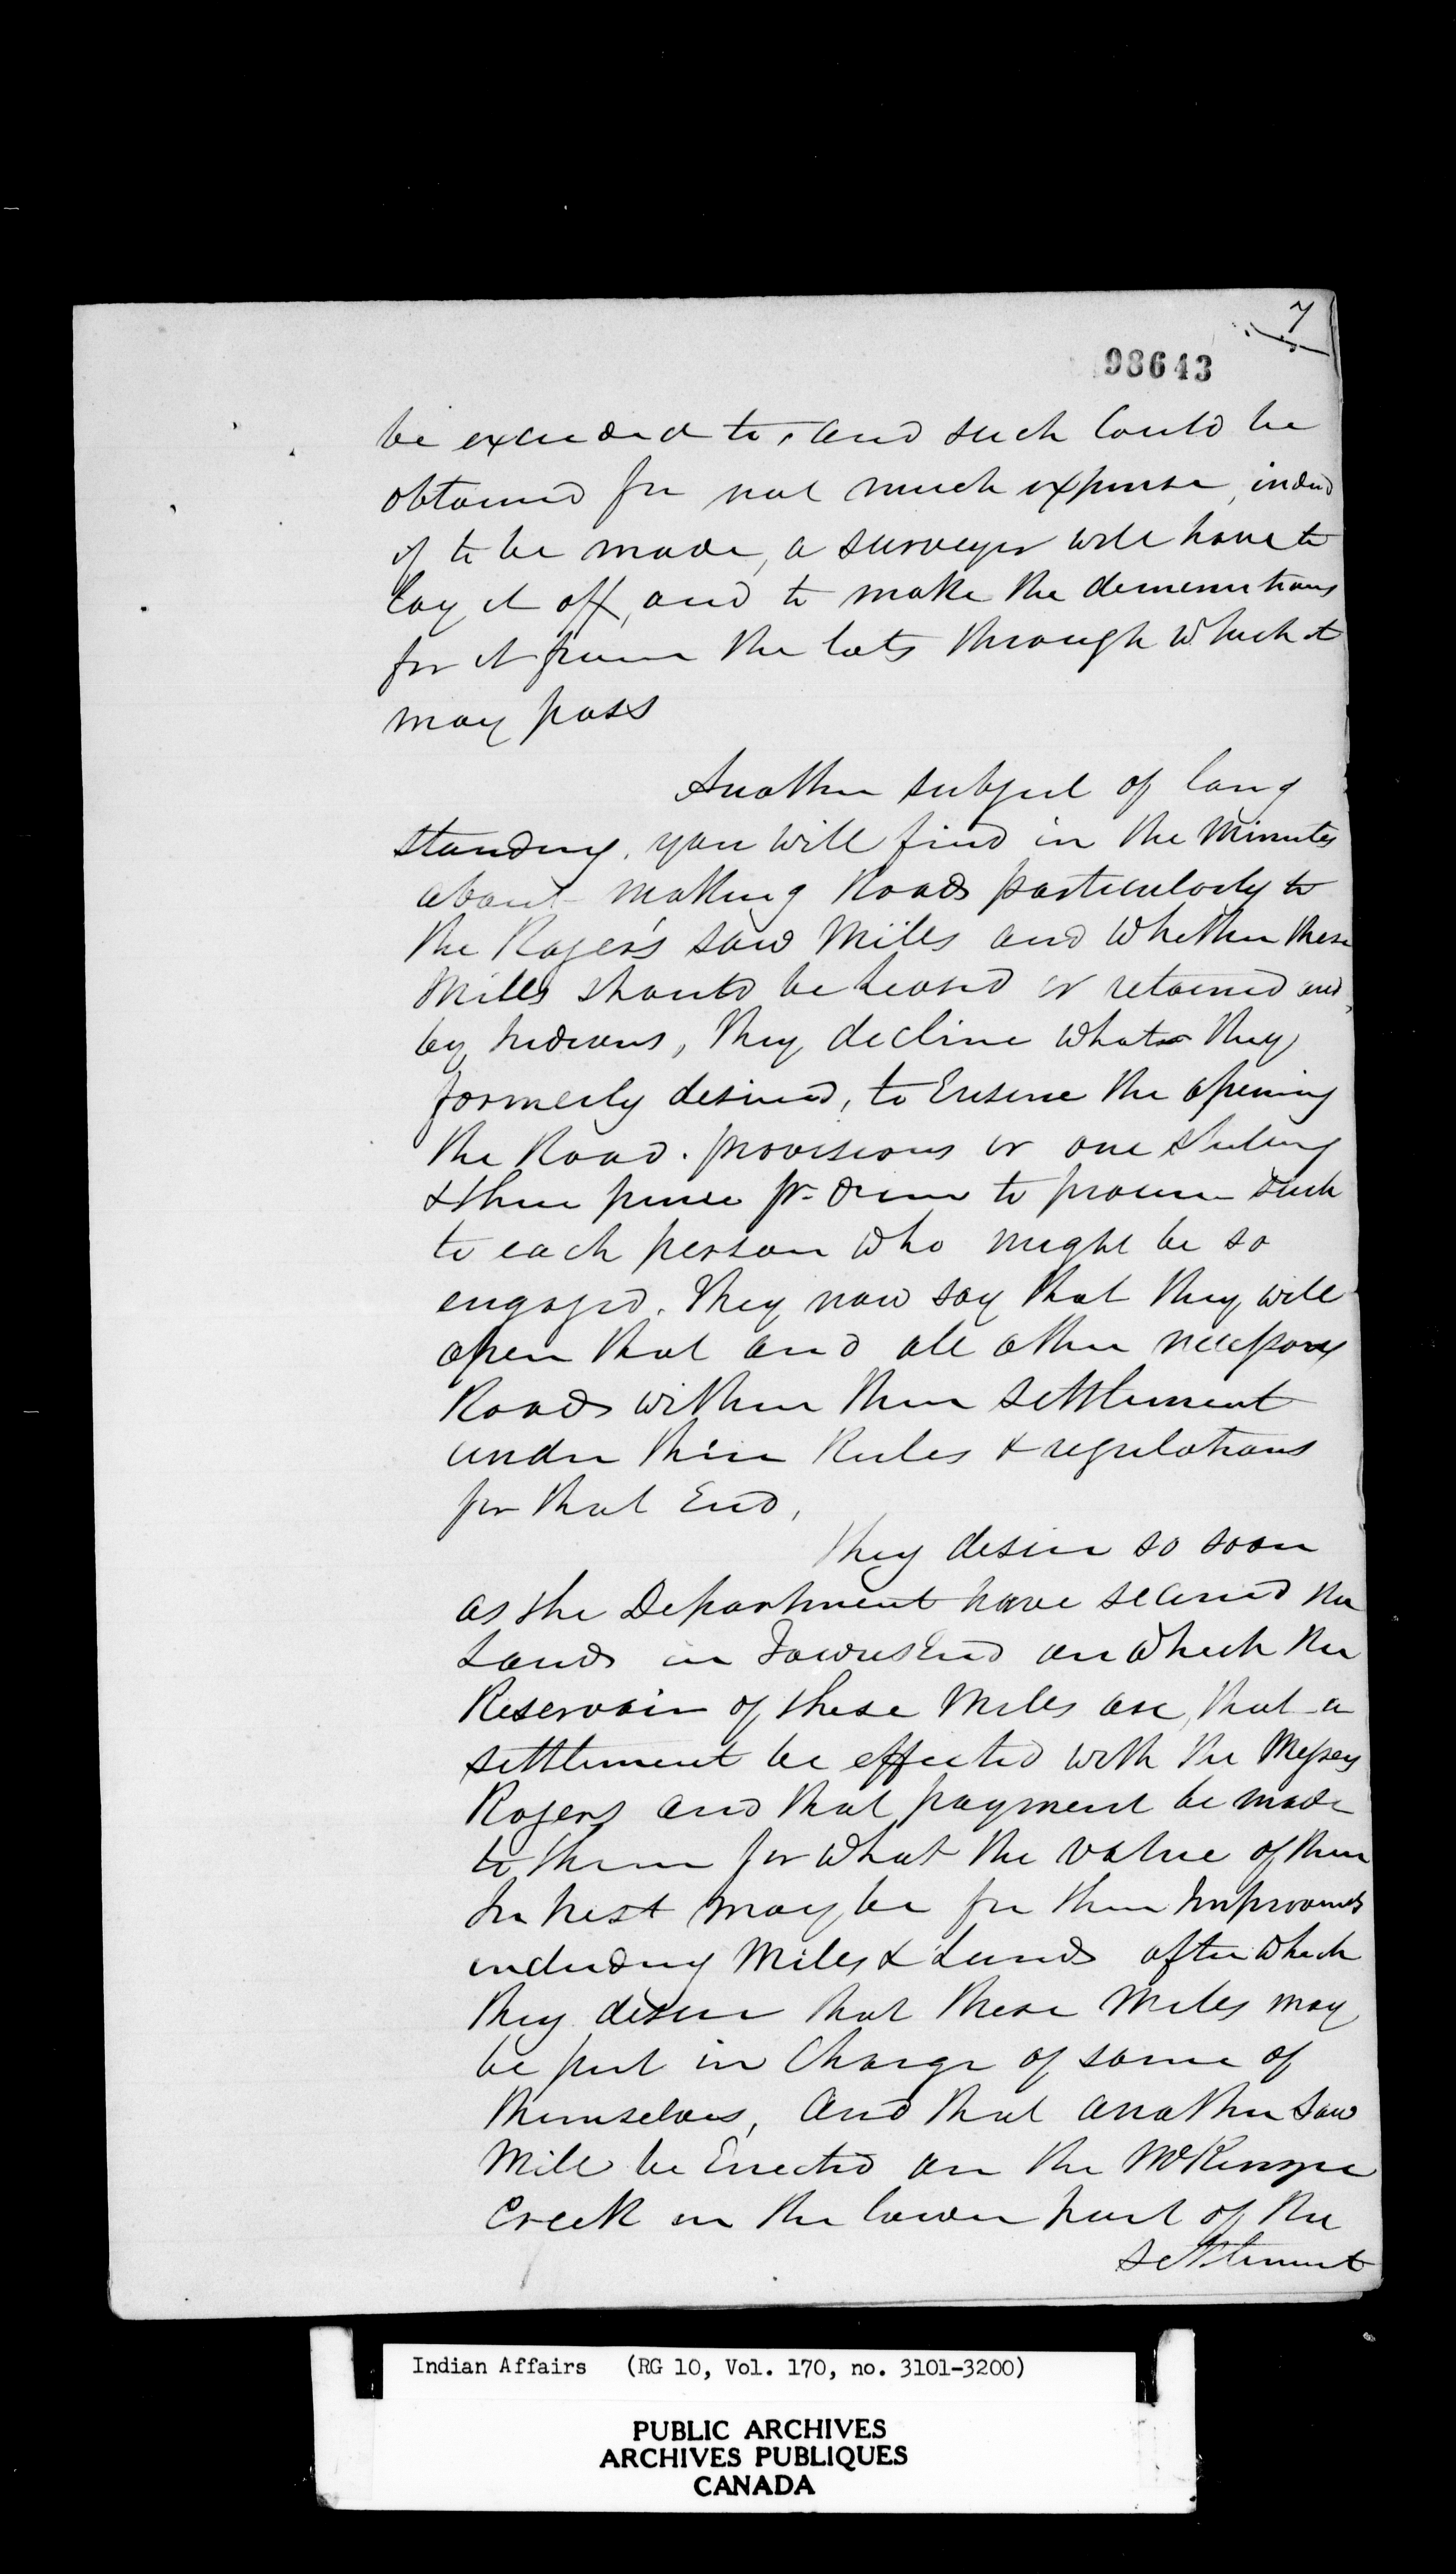 7
98643
be exceeded to, and such Could be
obtained for not much expense, indeed
if to be made, a surveyor will have to
lay it off, and to make the demenutions
for it from the lots through which it
may pass
Another subject of long
standing, you will find in the Minutes
about making Roads particularly to
the Roger's saw Mills and whether these
Mills should be Leased or retained and
by Indians, they decline what they
formerly desired, to Ensure the opening
the Road. provisions or one shilling
& three pence pr. diem to procure such
to each person who might be so
engaged. They now say that they will
open that and all other necessary
Roads within their settlement
under their Rules & regulations
for that End,
They desire so soon
as the Department have secured the
Lands in Townsend on which the
Reservoir of these Mills are, that a
settlement be effected with the Messrs
Rogers and that payment be made
to them for what the value of their
Interest may be for their Improvmts
including Mills & Lands after which
they desire that these Mills may
be put in Charge of some of
themselves, And that another Saw
Mill be Erected on the McKenzie
Creek in the lower part of the
settlement
Indian Affairs (RG 10, Vol. 170, no. 3101-3200)
PUBLIC ARCHIVES
ARCHIVES PUBLIQUES
CANADA